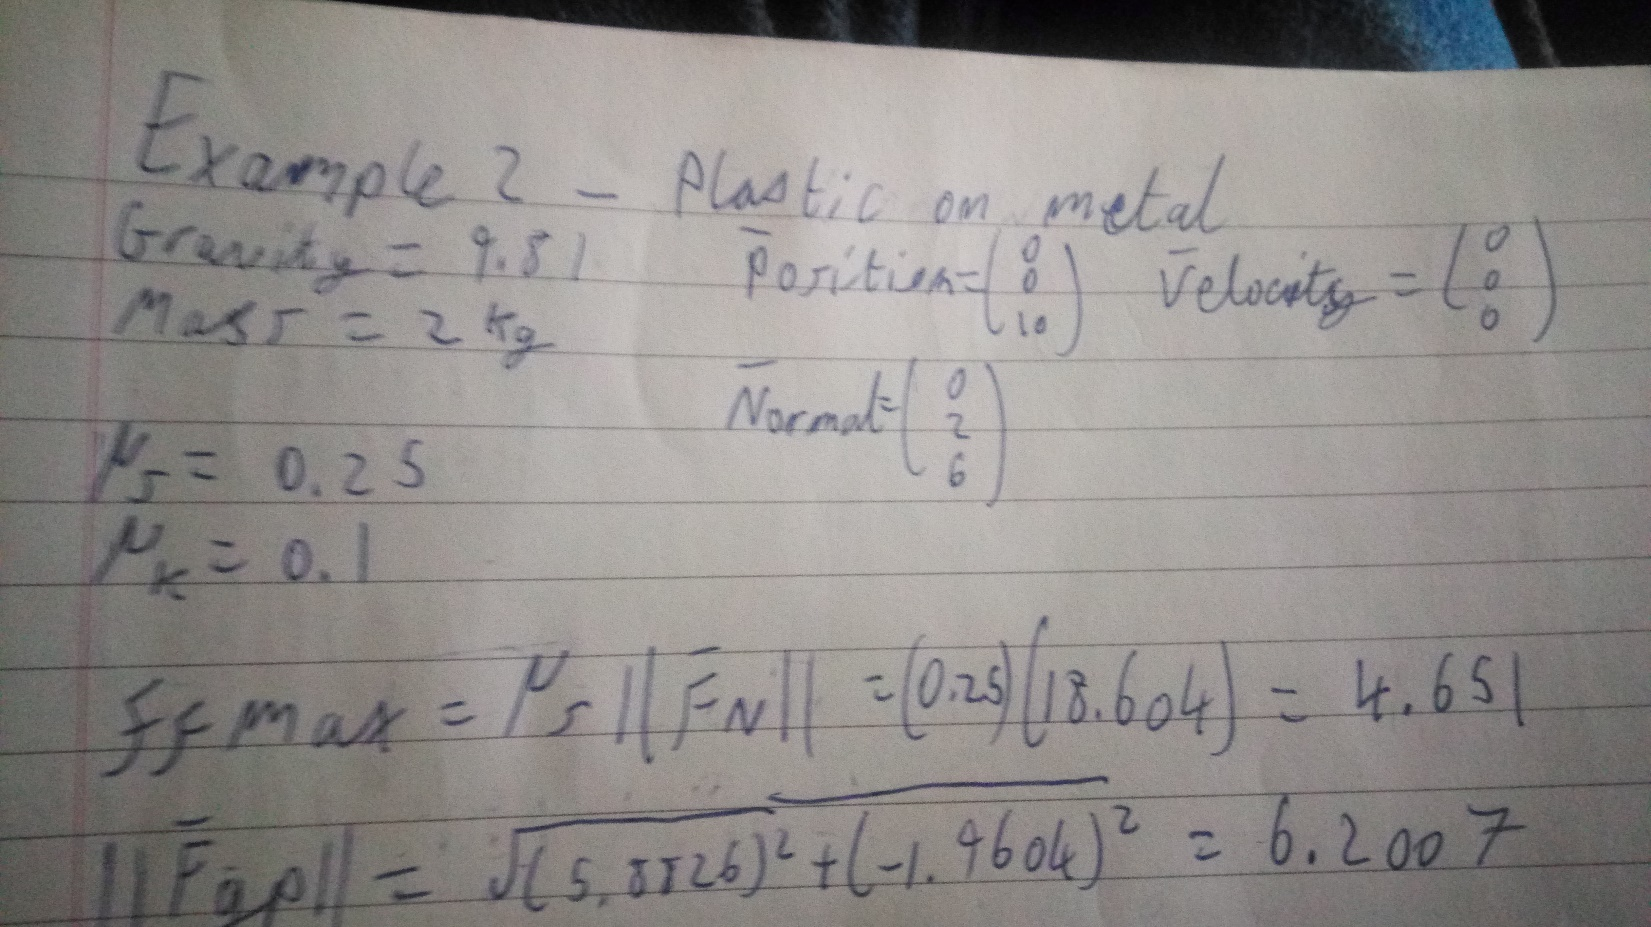 Example 2 - Plastic on metal
Gravity = 9.81 P̄osition = (0 0 10) V̄elocity = (0 0 0)
Mass = 2 kg
N̄ormal = (0 2 6)
μs = 0.25
μk = 0.1
ff max = μs ||F̄N|| = (0.25)(18.604) = 4.651
||F̄gp|| = √(5.8826)² + (-1.9604)² = 6.2007